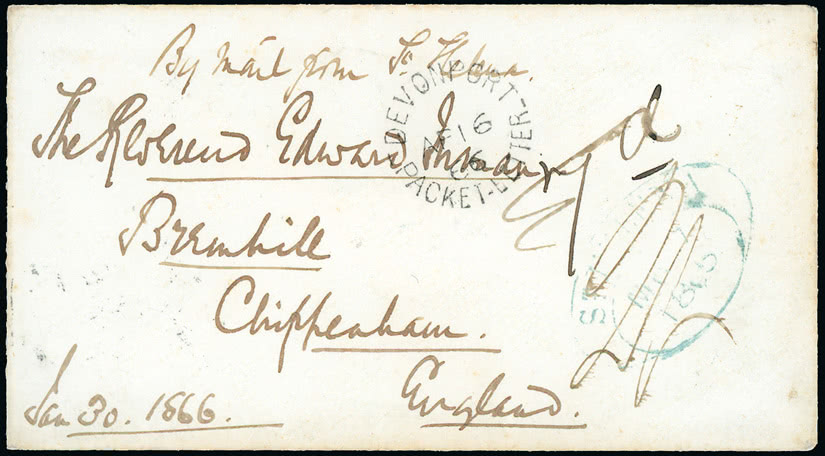 By Mail from St Helena.
DEVONPORT
AP 16
66
PACKET-LETTER
The Reverend Edward
Bremhill
Chippenham.
England.
Jan 30. 1866.
1866